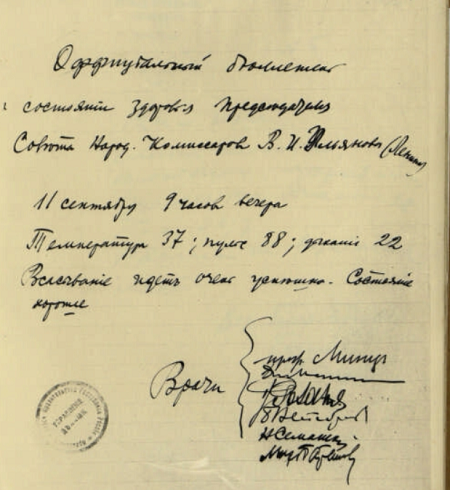 Оффициальный бюллетень
состояния здоровья Председателя
Совета Народ. Комиссаров В. И. Ульянова (Ленин
11 сентября 9 часов вечера
Температура 37; пульс 88; дыхание 22
идетъ очень успешно. Состояние
хорошее
Врачи
проф. Минц
Н Семашко